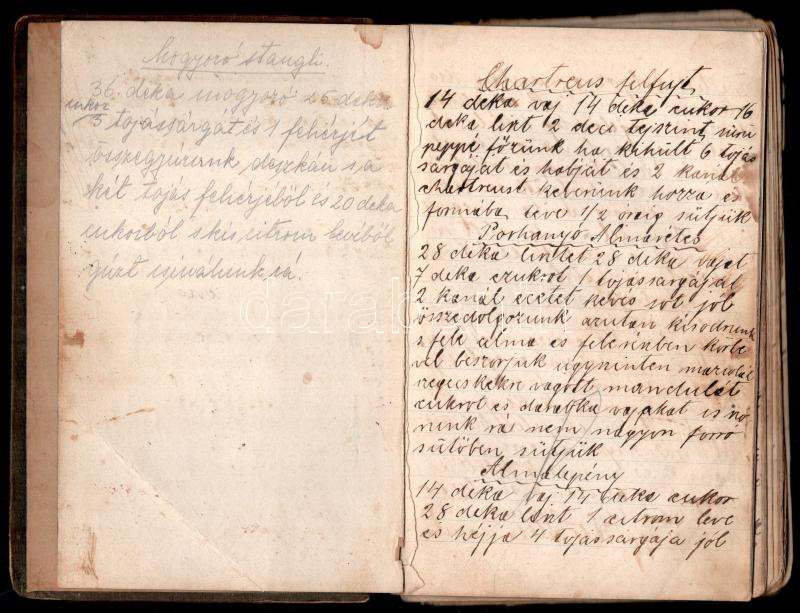 Mogyoró stangli.
36. deka mogyoró 26 deka
cukor
3 tojássárgát és 1 fehérjét
összegyúrunk deszkán s a
két tojás fehérjéből és 20 deka
cukorból s kis citrom levéből
gúzt csinálunk rá.
Chartreus felfujt
14 deka vaj 14 deka cukor 16
deka liszt 2 deci tejszint sűrű
péppé főzünk ha kihült 6 tojás
sárgáját és habját és 2 kanál
chartreust keverünk hozzá és
formába téve 1/2 óráig sütjük
Porhanyó Almarétes
28 deka lisztet 28 deka vajat
7 deka czukrot 1 tojássárgáját
2 kanál ecetet kevés sót jól
összedolgozunk azután kisodrunk
s fele alma és fele
vel beszórjuk ugyszinten mazsolát
vagott mandulát
cukrot és darabka vajakat is
runk rá nem nagyon forró
sütőben sütjük
Almalepény
14 deka vaj 14 deka cukor
28 deka liszt 1 citrom leve
és héjja 4 tojássárgája jól
darabanth.com